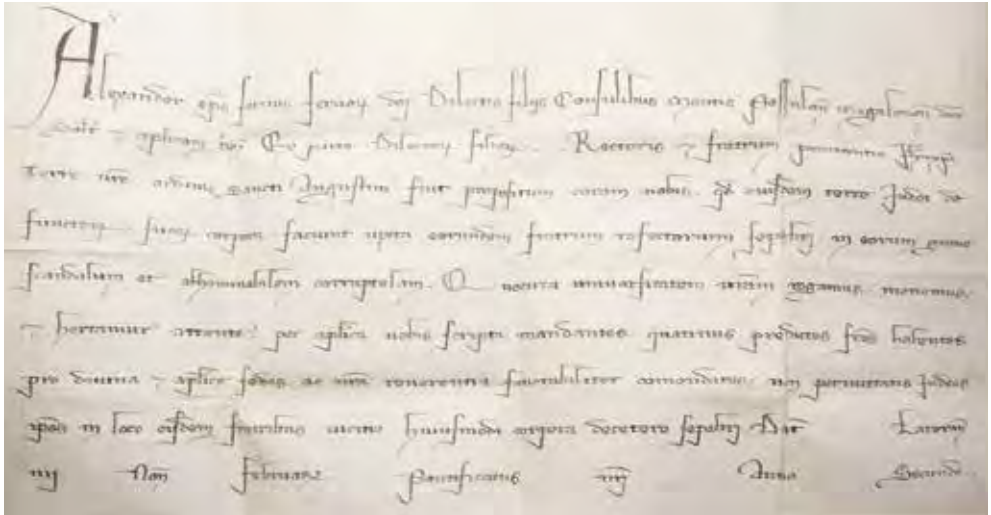 Alexander eps seruus seruoꝝ dei Dilectis filijs Consulibus Montis pessulan Magalonen dioc
Salt ⁊ aplicam ben Ex parte Dilectoꝝ filioꝝ Rectoris ⁊ fratrum penitentie
terre ure ordinis sancti Augustini fuit propositum coram nobis qd eiusdem terre Judei de
functoꝝ suoꝝ corpora faciunt iuxta eorundem fratrum refectorium sepeliri in eorum graue
scandalum et abhominabilem corruptelam. Quocirca uniuersitatem uram rogamus monemus
⁊ hortamur attente per aplica uobis scripta mandantes quatinus predictos fres habentes
pro diuina ⁊ aplice sedis ac nra reuerentia fauorabiliter comendatos, non permittatis Judeos
ipos in loco eisdem fratribus uicino huiusmodi corpora decetero sepeliri Dat Lateran
Non Februarii Pontificatus nri Anno Secundo